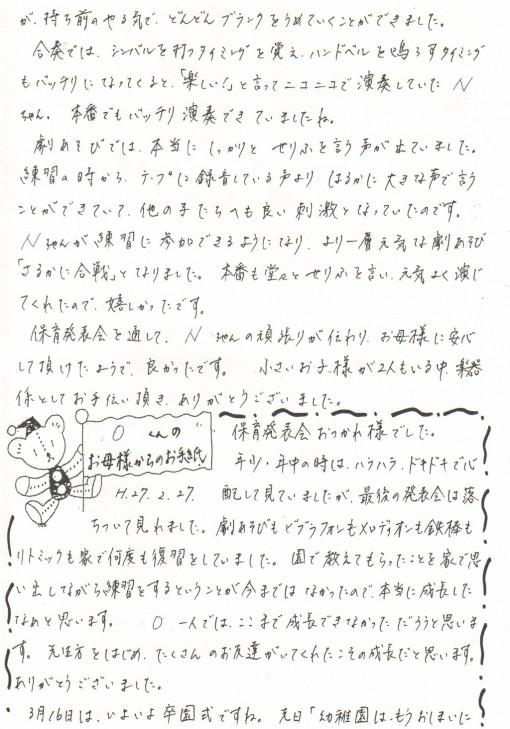 が、持ち前のやる気で、どんどんブランクをうめていくことができました。
合奏では、シンバルを打つタイミングを覚え、ハンドベルを鳴らすタイミング
もバッチリになってくると、「楽しい!」と言ってニコニコで演奏していた N
ちゃん。 本番でもバッチリ演奏できていましたね。
劇あそびでは、本当にしっかりとせりふを言う声が出ていました。
練習の時から、テープに録音している声よりはるかに大きな声で言う
ことができていて、他の子たちへも良い刺激となっていたのです。
Nちゃんが練習に参加できるようになり、より一層元気な劇あそび
「さるかに合戦」となりました。 本番も堂々とせりふを言い、元気よく演じ
てくれたので、嬉しかったです。
保育発表会を通して、 N ちゃんの頑張りが伝わり、お母様に安心
して頂けたようで、良かったです。 小さいお子様が2人もいる中、楽器
係としてお手伝い頂き、ありがとうございました。
O くんの
お母様からのお手紙
H.27.2.27.
保育発表会おつかれ様でした。
年少・年中の時は、ハラハラ、ドキドキで心
配して見ていましたが、最後の発表会は落
ちついて見れました。劇あそびもビブラフォンもメロディオンも鉄棒も
リトミックも家で何度も復習をしていました。園で教えてもらったことを家で思
い出しながら練習をするということが今まではなかったので、本当に成長した
なあと思います。 O 一人では、ここまで成長できなかっただろうと思いま
す。 先生方をはじめ、たくさんのお友達がいてくれたこその成長だと思います。
ありがとうございました。
3月16日は、いよいよ卒園式ですね。 先日「幼稚園は、もうおしまいに